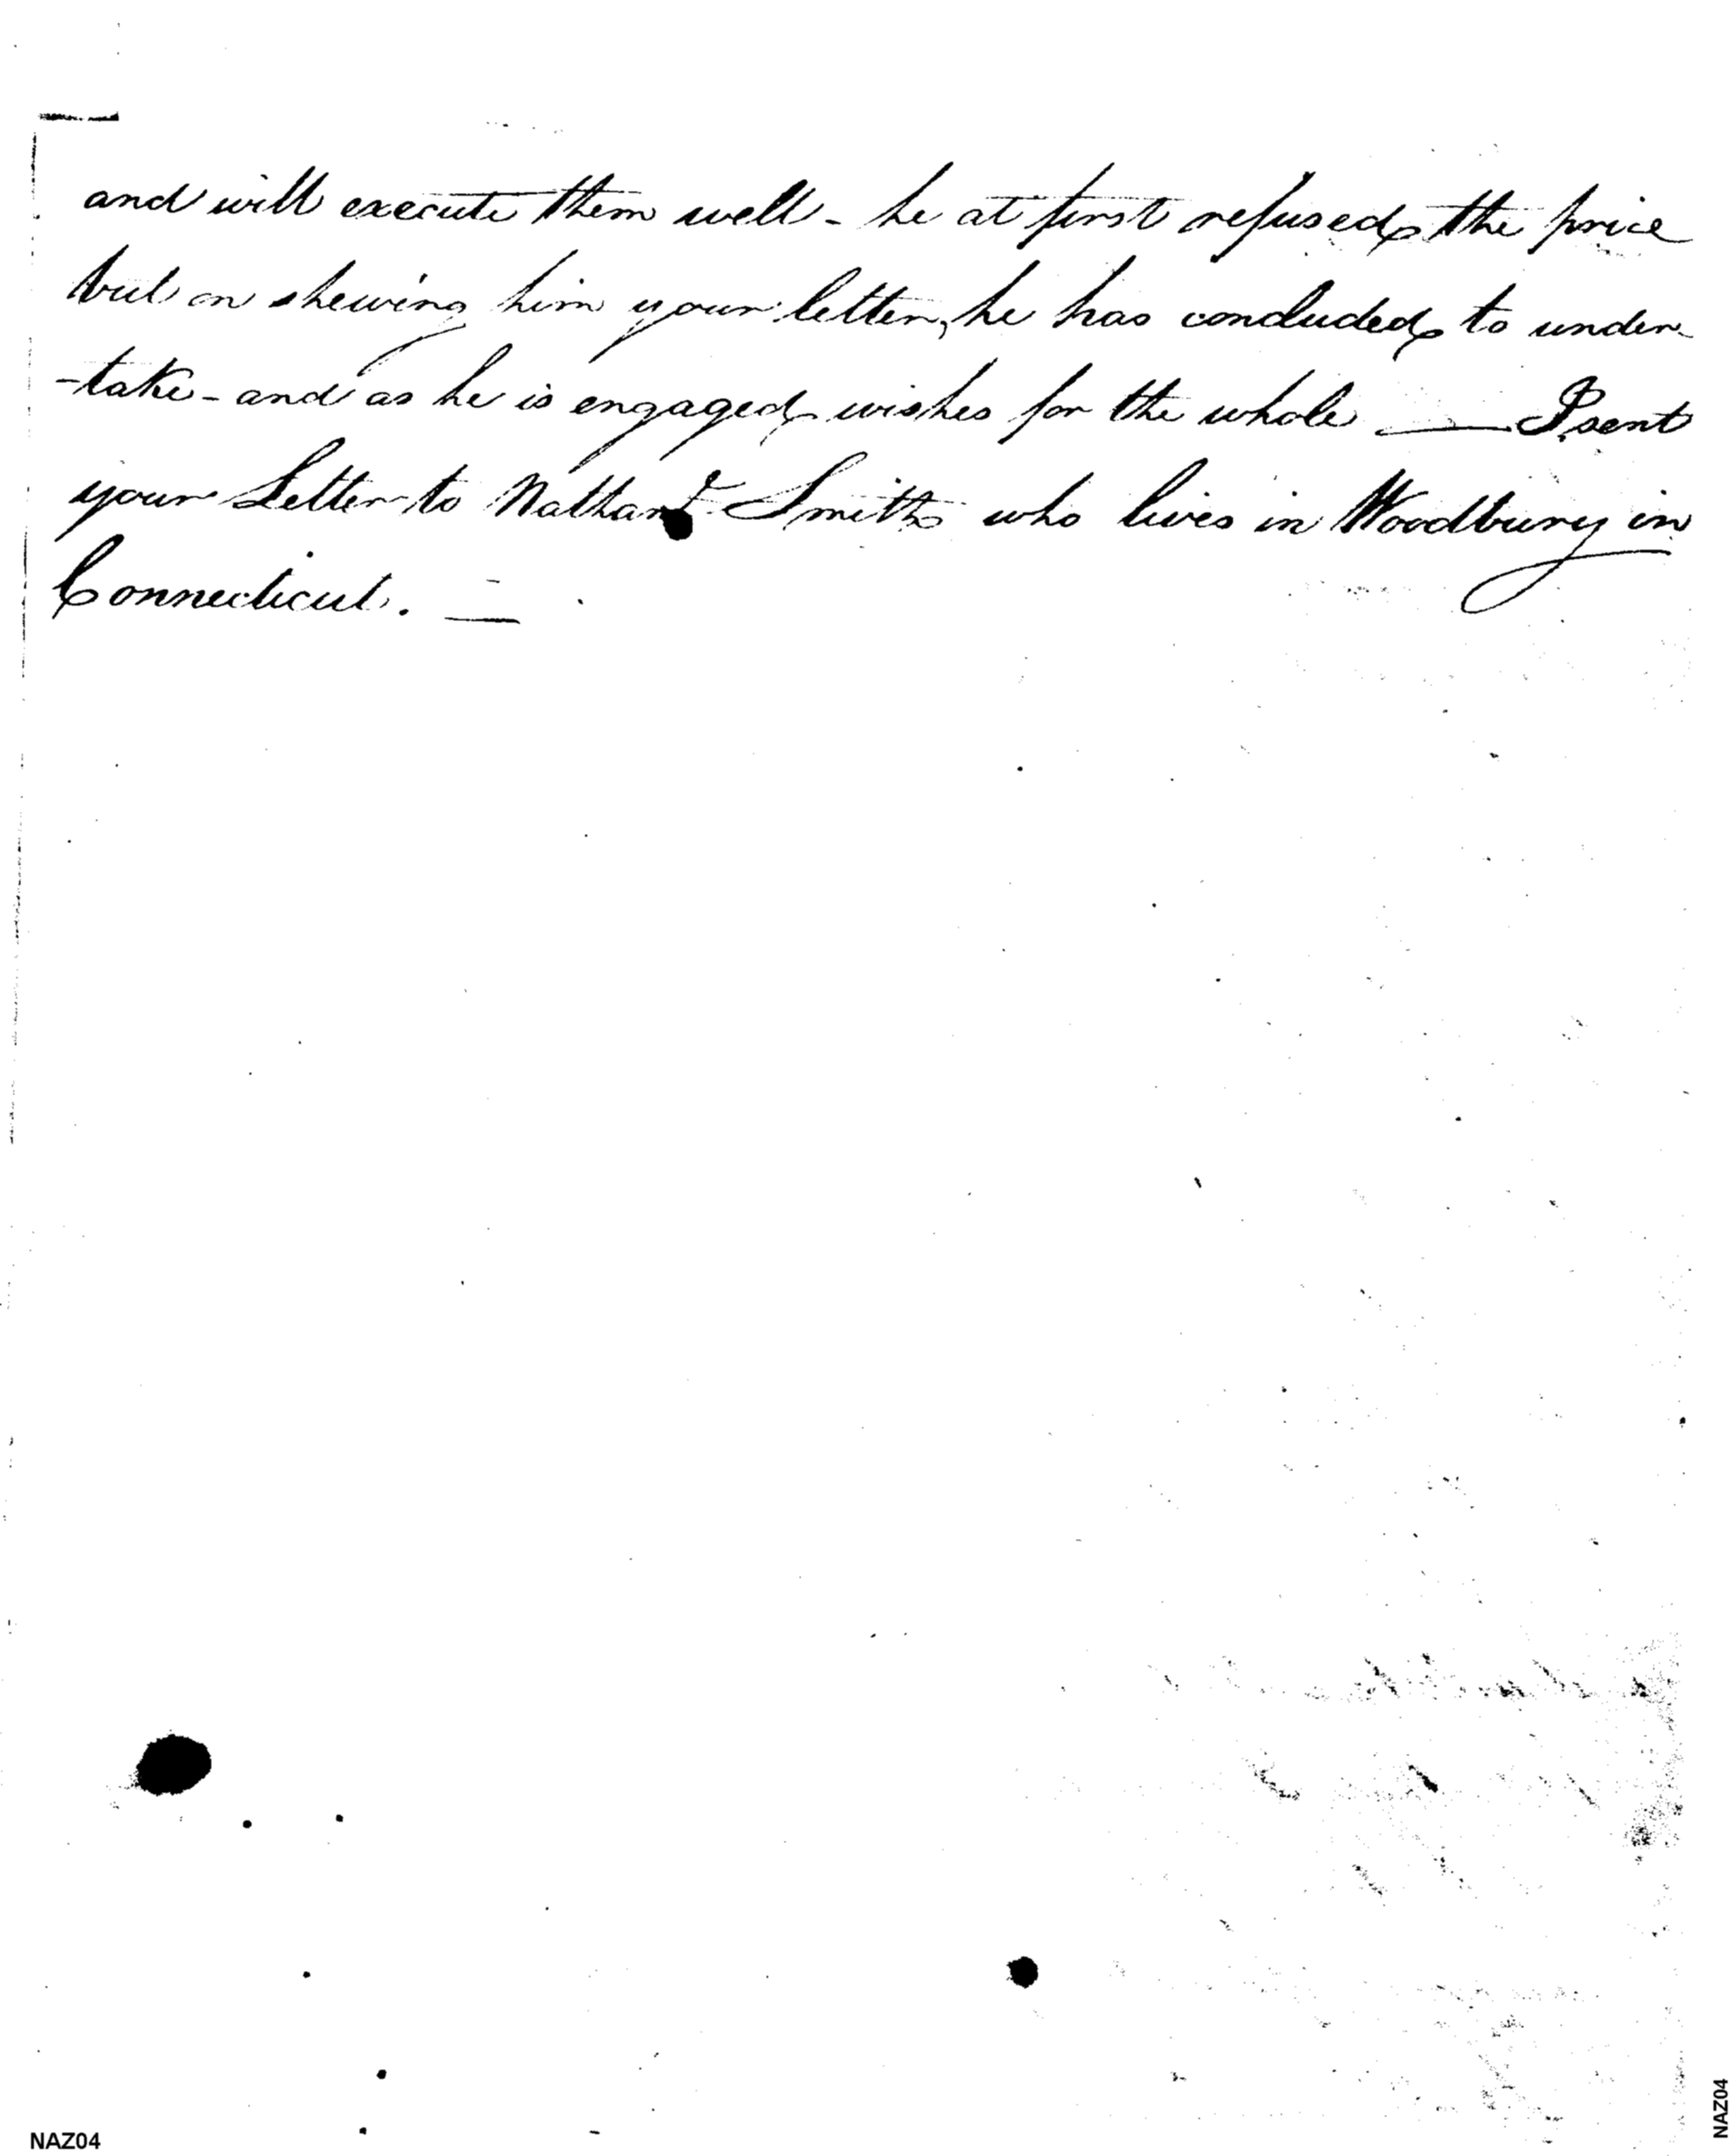 and will execute them well - he at first refused the price
but on shewing him your letter, he has concluded to under-
-take - and as he is engaged, wishes for the whole — I sent
your Letter to Nathanl Smith who lives in Woodbury in
Connecticut. —
NAZ04
NAZ04